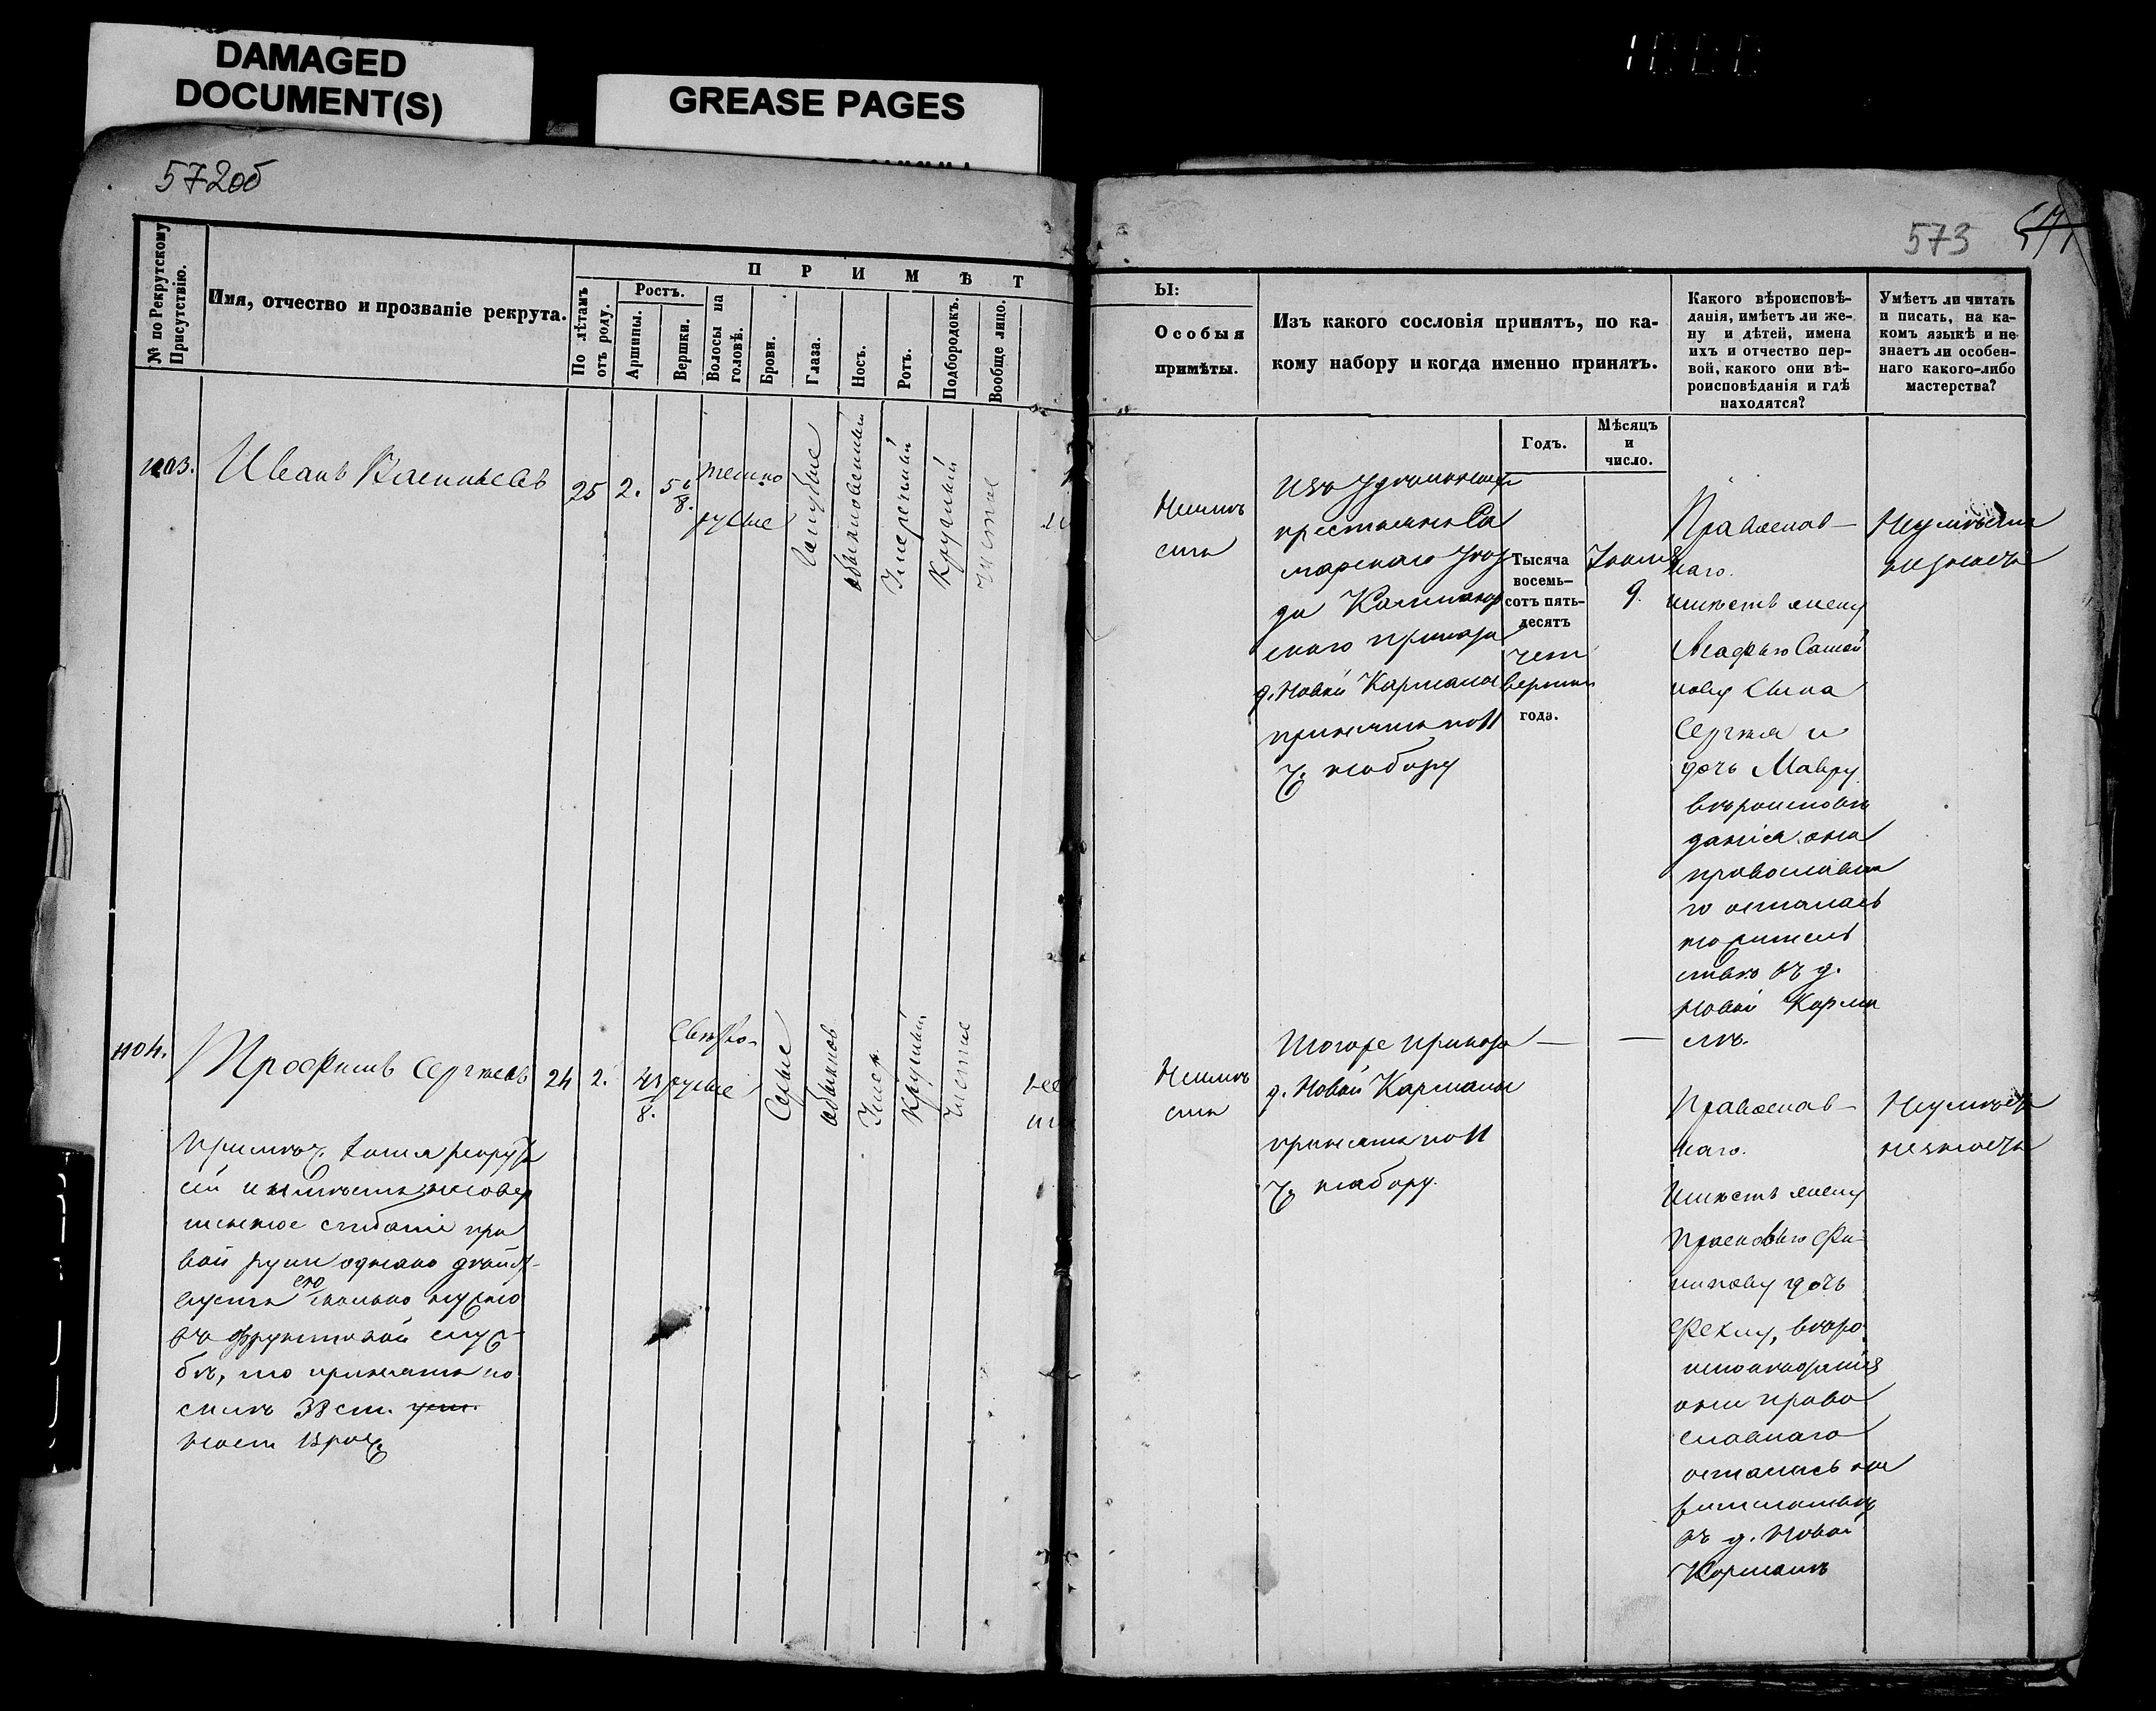 DAMAGED
DOCUMENT(S)
GREASE PAGES
572об
573
№ по Рекрутскому
Присутствію.
Имя, отчество и прозваніе рекрута.
П Р И М Ѣ Т
По лѣтамъ
отъ роду.
Ростъ.
Аршины.
Вершки.
Волосы на
головѣ.
Брови.
Глаза.
Носъ.
Ротъ.
Подбородокъ.
Вообще лицо.
Ы:
Особыя
примѣты.
Изъ какого сословія принятъ, по ка-
кому набору и когда именно принятъ.
Какого вѣроисповѣ-
данія, имѣетъ ли же-
ну и дѣтей, имена
ихъ и отчество пер-
вой, какого они вѣ-
роисповѣданія и гдѣ
находятся?
Умѣетъ ли читать
и писать, на ка-
комъ языкѣ и не
знаетъ ли особен-
наго какого-либо
мастерства?
Годъ.
Мѣсяцъ
и
число.
1103.
Иванъ
25
2.
5 6/8.
темно
русые
Голубые
обыкновенный
Умеренный
Круглый
чистое
Неимѣ
етъ
Изъ Удѣльныхъ
крестьянъ Са
марскаго Уѣз
да
скаго приказа
д. Новой Кармалы
принятъ по 11
ч. набору
Тысяча
восемь-
сотъ пять-
десятъ
чет
вертаго
года.
9.
Православ-
наго.
имѣетъ жену
Марфу
сына
Сергѣя и
дочь Мавру
вѣроисповѣ
данія она
православна
го осталась
на житель
ствѣ въ д.
Новой Карма
лѣ.
Неумѣетъ
незнаетъ
1104.
Трофимъ Сергѣевъ
24
2.
4 1/8.
Свѣтло-
русые
Серые
обыкнов
Умер.
Круглый.
чистое
Неимѣ
етъ
Тогоже приказа
д. Новой Кармалы
принятъ по 11
ч. набору.
—
—
Православ-
наго.
Имѣетъ жену
Прасковью Фи-
липову дочь
Феклу, вѣро
исповѣданія
они право
славнаго
остались на
жительствѣ
въ д. Новой
Кармалѣ
Неумѣетъ
незнаетъ
Примѣч.
имѣетъ несовер
шенное сгибаніе пра
вой руки однако
его сколько нужно
въ фрунтовой служ-
бѣ, то принятъ по
силѣ 38 ст.